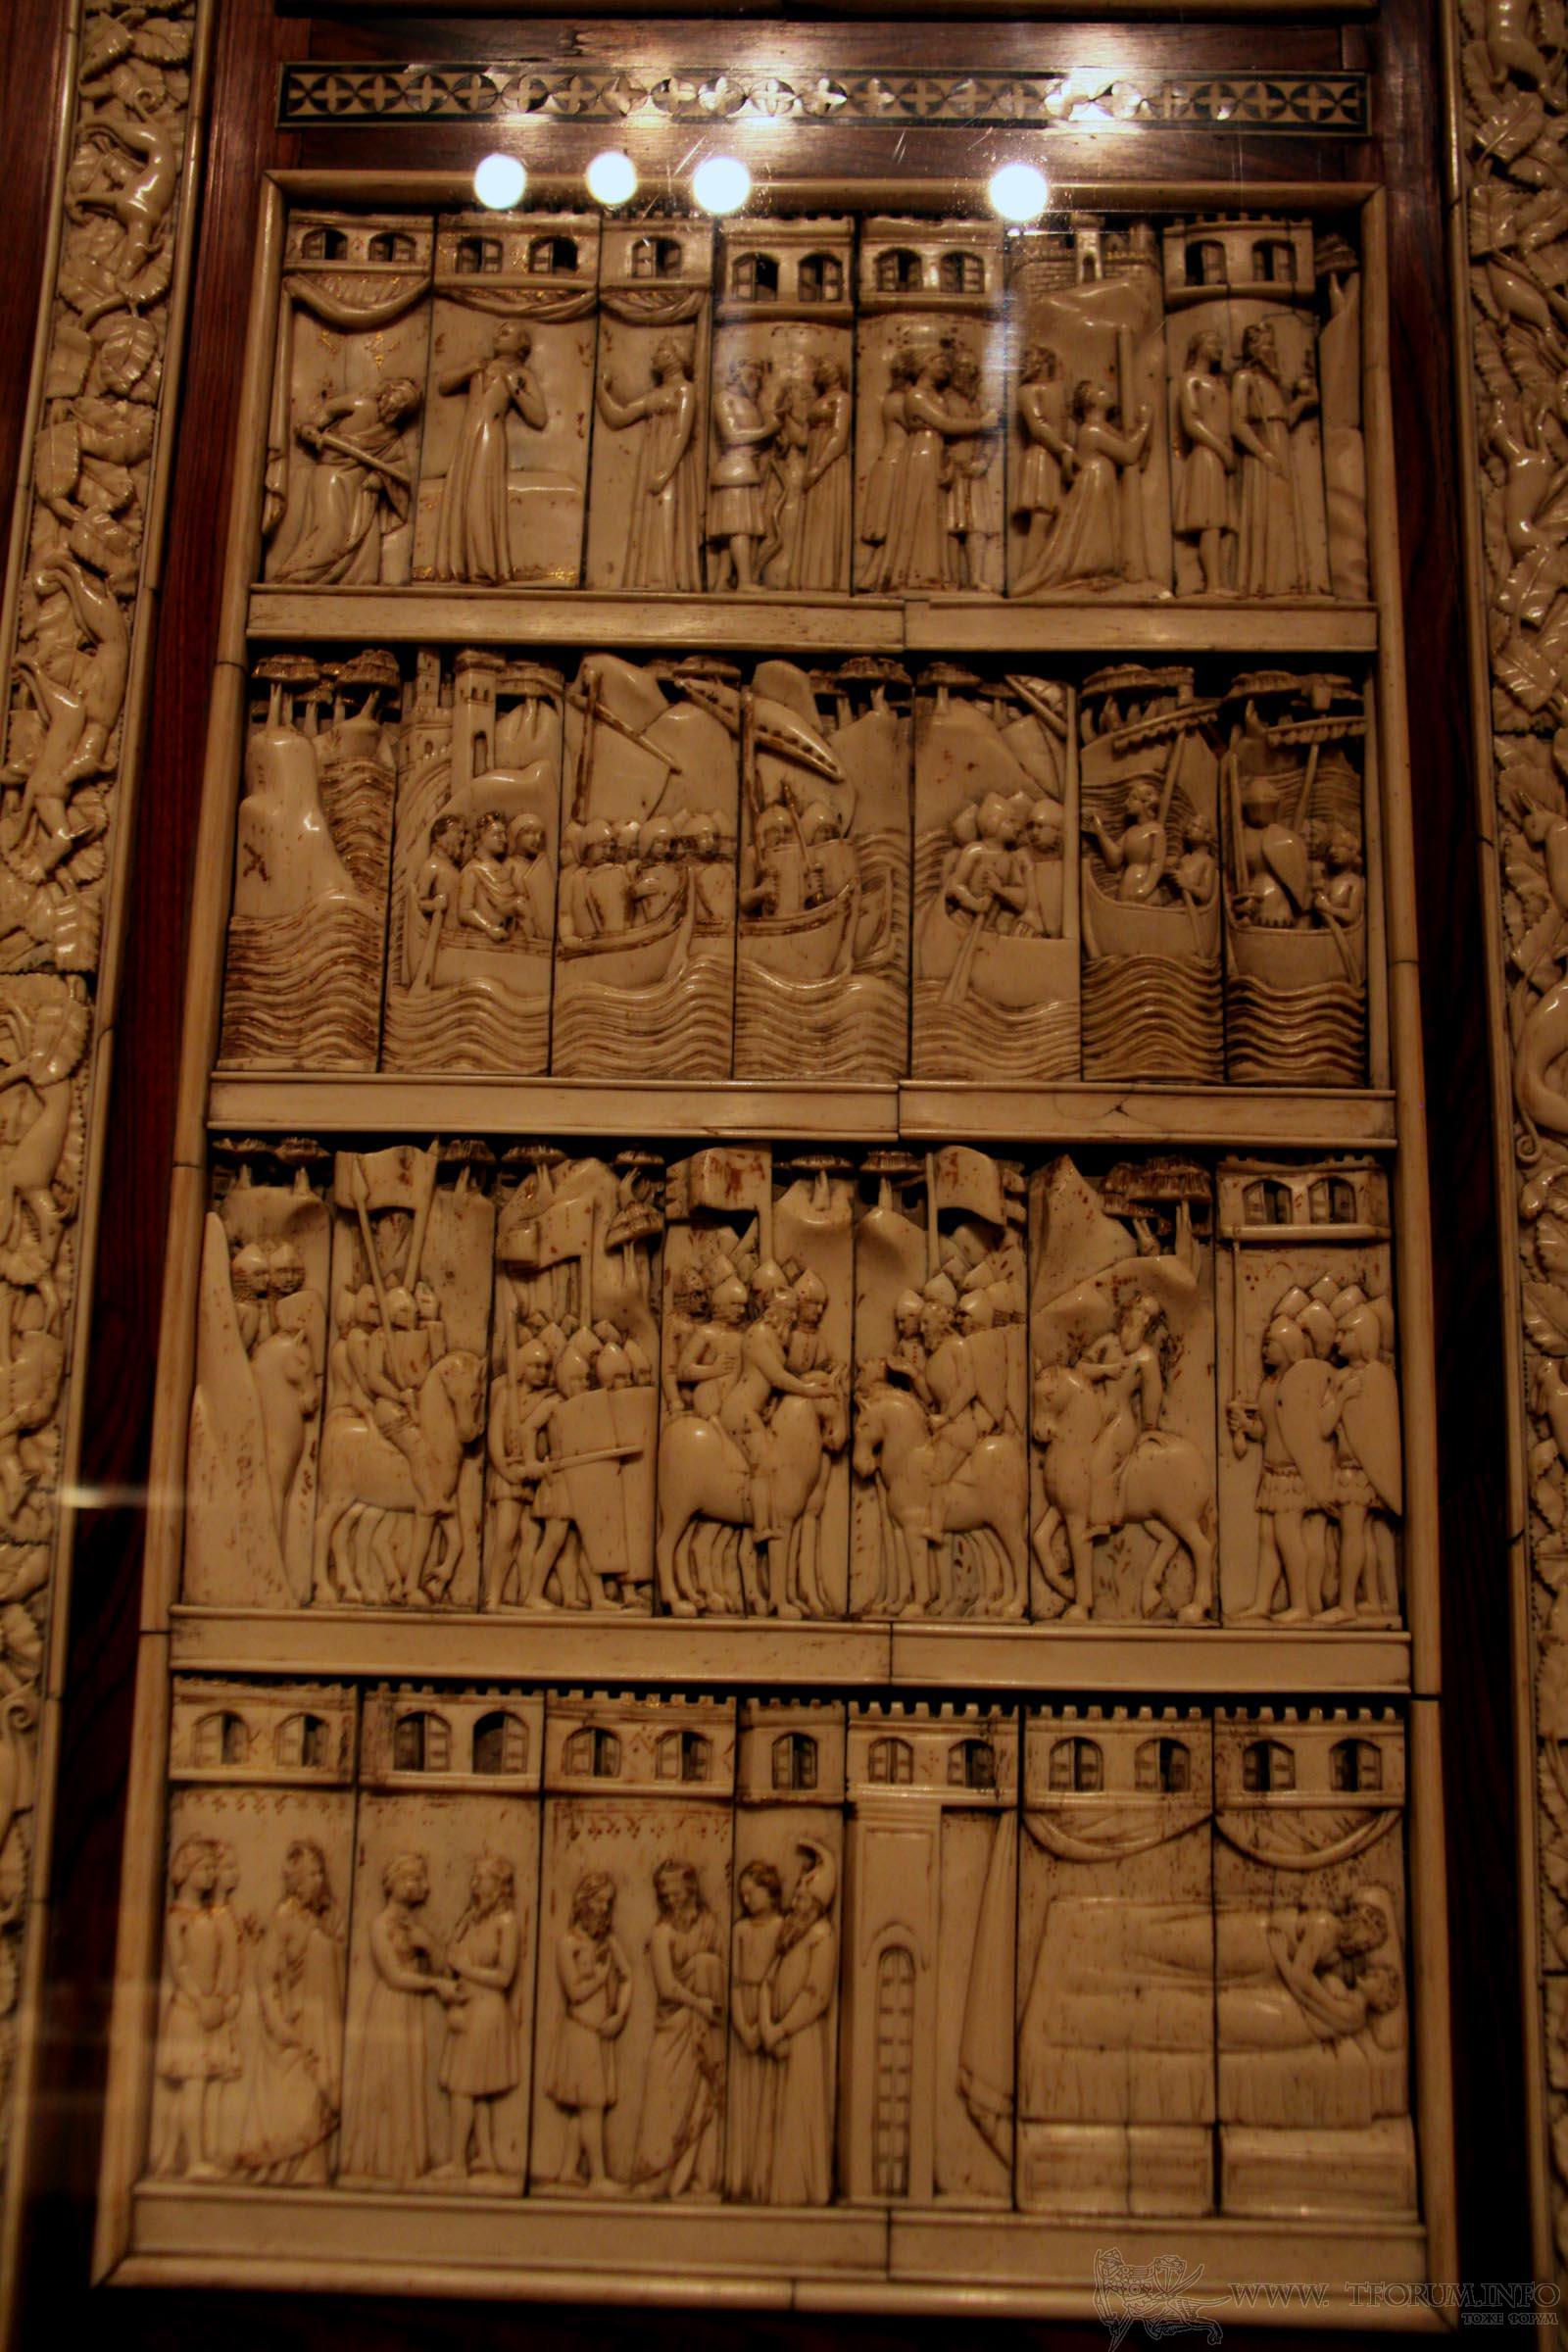 WWW. TFORUM.INFO
ТОЖЕ ФОРУМ